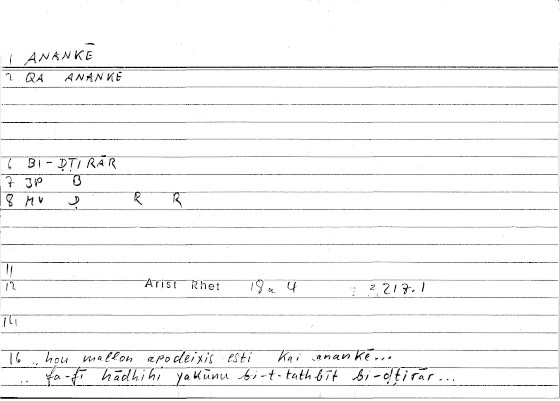 1 ANANKĒ
2 QA ANANKE
6 BI-ḌṬIRĀR
7 3P B
8 MV Ḍ R R
11
12 Arist Rhet 18a4 217.1
14
16 .. hou mallon apodeixis esti kai anankē...
.. fa-fī hādhihi yakūnu bi-t-tathbīt bi-ḍṭirār...